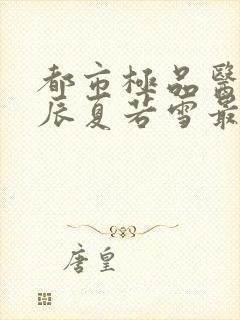 都市極品醫
辰夏若雪最
唐皇